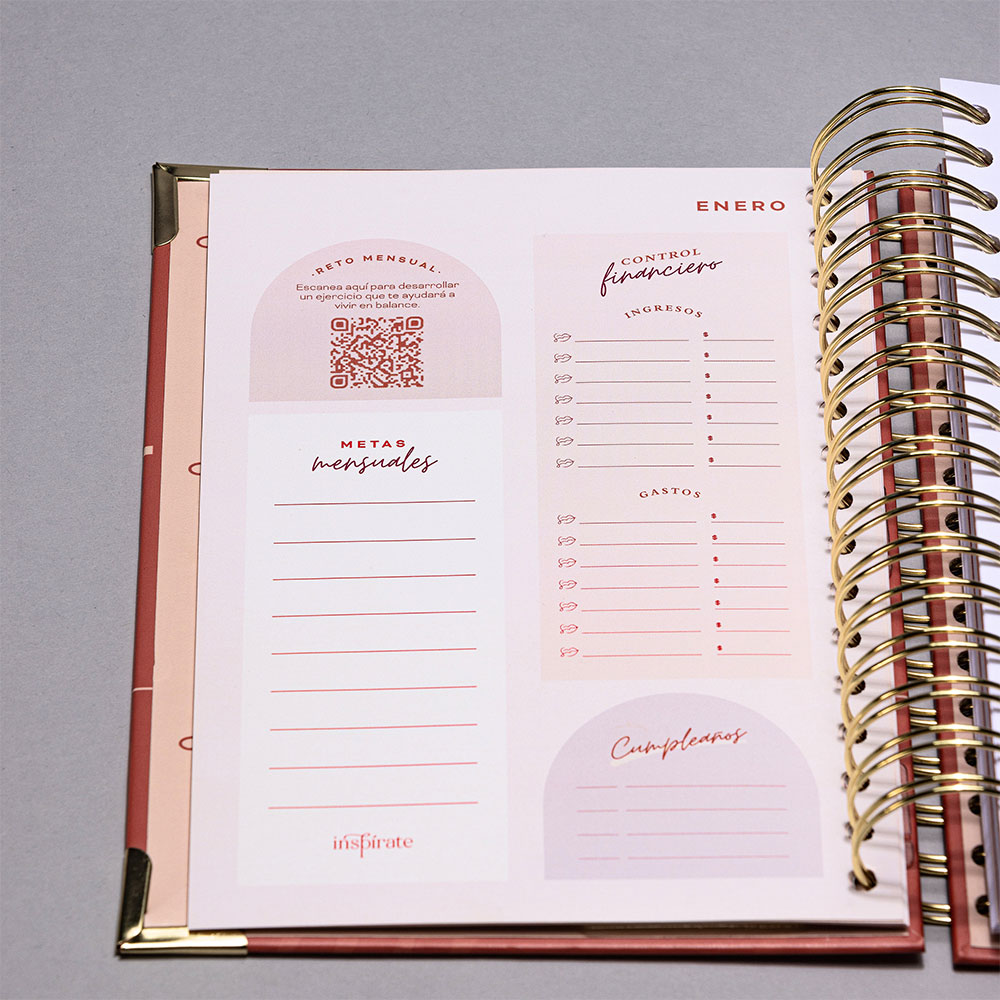 ENERO
·RETO MENSUAL·
Escanea aquí para desarrollar
un ejercicio que te ayudará a
vivir en balance.
METAS
mensuales
inspírate
CONTROL
financiero
INGRESOS
$
$
$
$
$
$
$
GASTOS
$
$
$
$
$
$
$
Cumpleaños